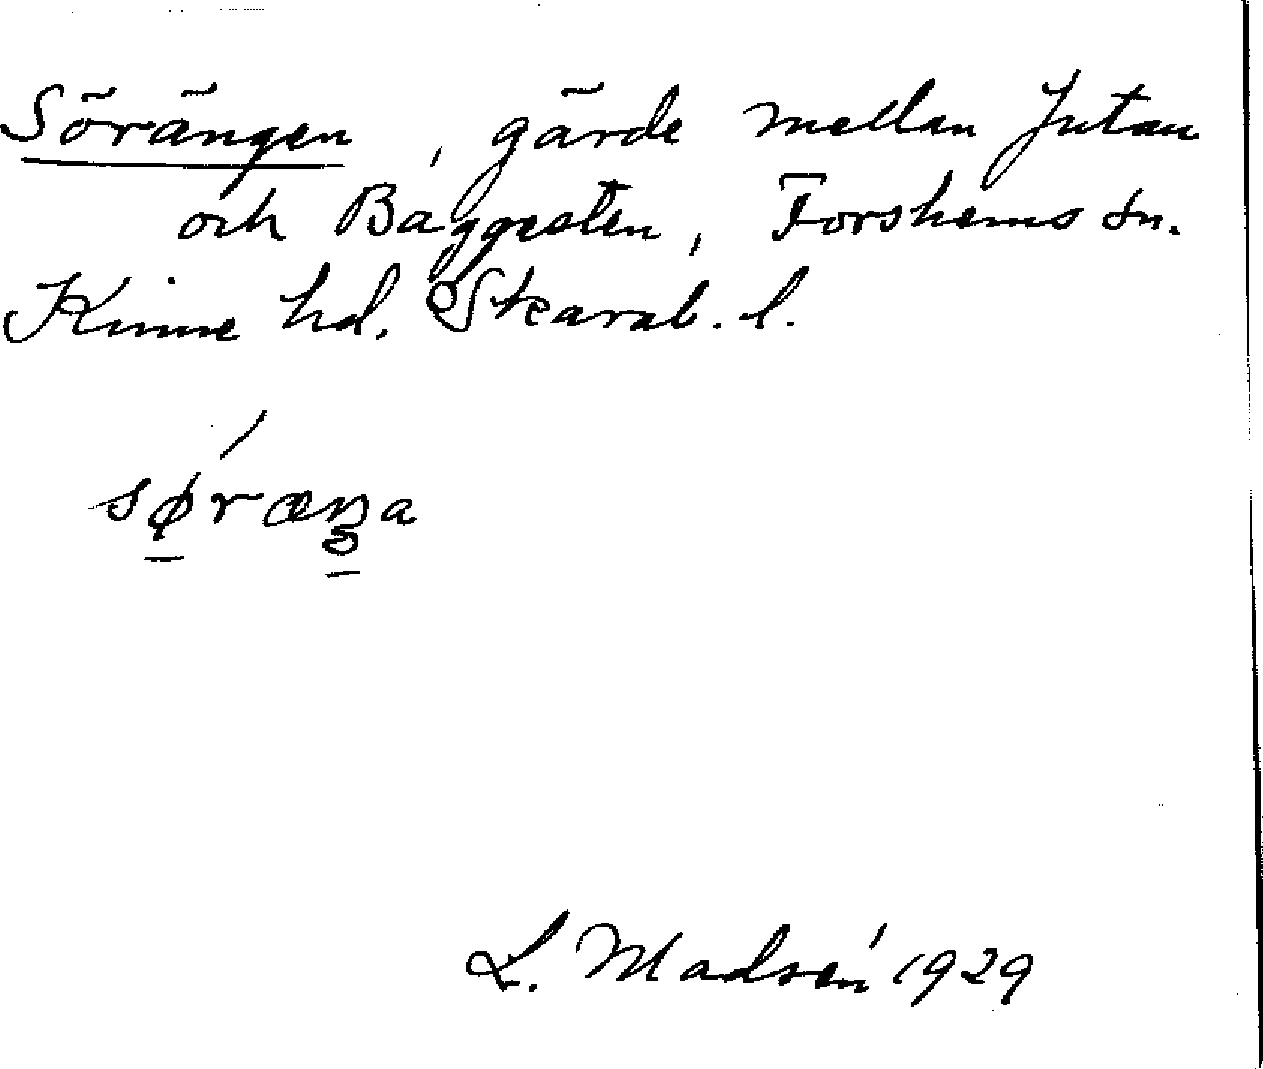 Sörängen, gärde mellan Jutan
och Baggesten, Forshems sn.
Kinne hd. Skarab. l.
sørænga
L. Madsén 1929